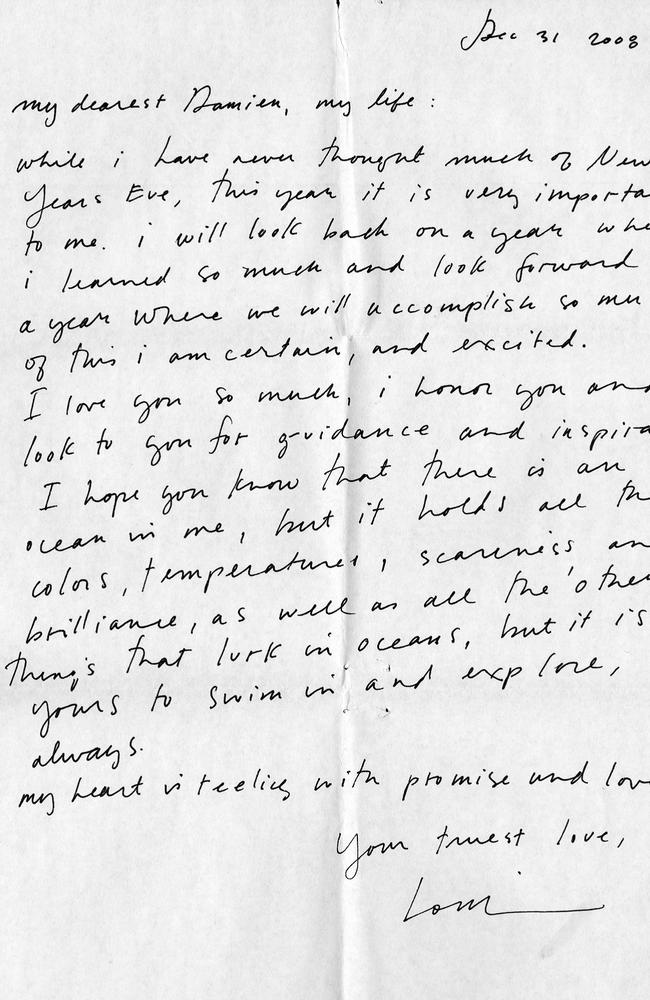 Dec 31 2008
my dearest Damien, my life :
while i have never thought much of New
Years Eve, this year it is very importa
to me. i will look back on a year whe
i learned so much and look forward
a year where we will accomplish so mu
of this i am certain, and excited.
I love you so much, i honor you and
look to you for guidance and inspira
I hope you know that there is an
ocean in me, but it holds all th
colors, temperatures, scareness, an
brilliance, as well as all the other
things that lurk in oceans, but it is
yours to swim in and explore,
always.
my heart is with promise and lov
Your truest love,
Lorri